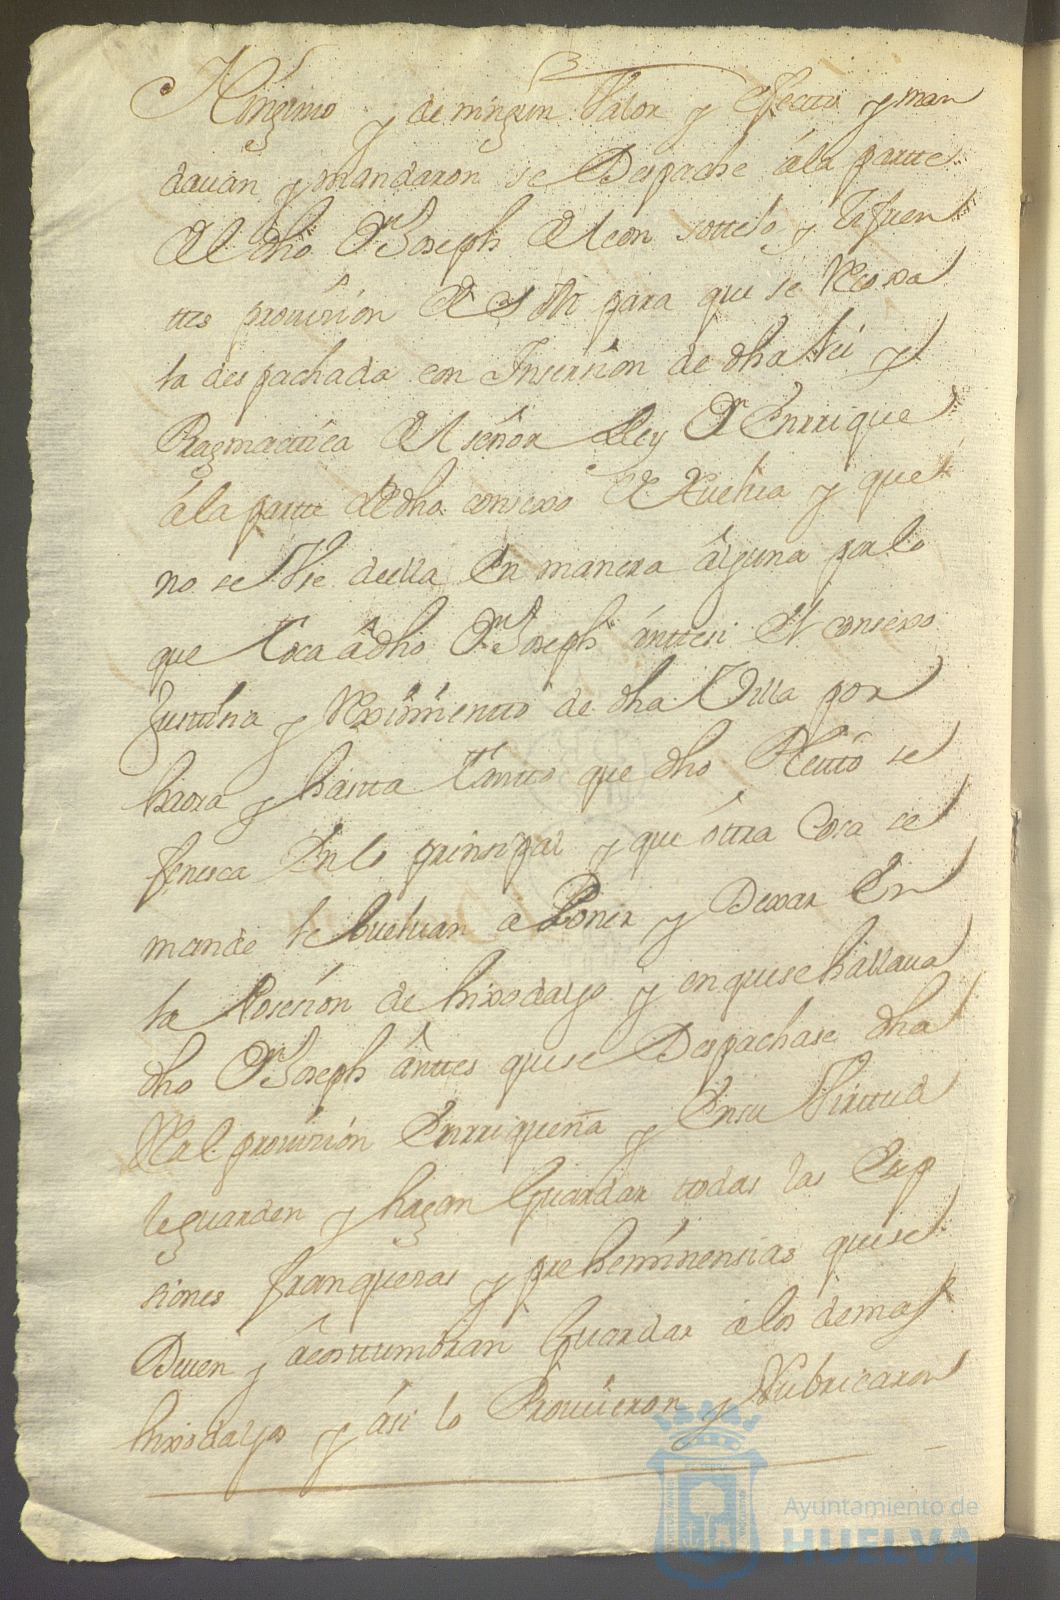 Ninguno y de ningun Valor y efectto y man
dauan y mandaron se Despache ála partte
del dho Dn Joseph de leon sottelo y Zifuen
ttes prouision de S M para que se Recoxa
la despachada con Inserssion de dha lei y
Pragmattica del señor Rey Dn Enrrique
ála partte del dho consexo de Xuelua y que
no se Vse della En manera álguna por lo
que toca á dho Dn Joseph ánttesi el consexo
Justtisia y Reximientto de dha Villa por
haora y hastta tantto que dho Pleitto se
fenesca En lo prinsipal y que ottra Cosa se
mande le bueluan a Poner y Dexar En
la Posesion de hixodalgo y en que se hallaua
dho Dn Joseph ánttes que se Despachase dha
Real prouision Enrriqueña y En su Virttud
le guarden y hagan Guardar todas las Exp
siones franquesas y preheminensias que se
Deuen y ácosttumbran Guardar á los demas
hixosdalgo y ási lo Prouieron y Rubricaron
Ayuntamiento de
HUELVA